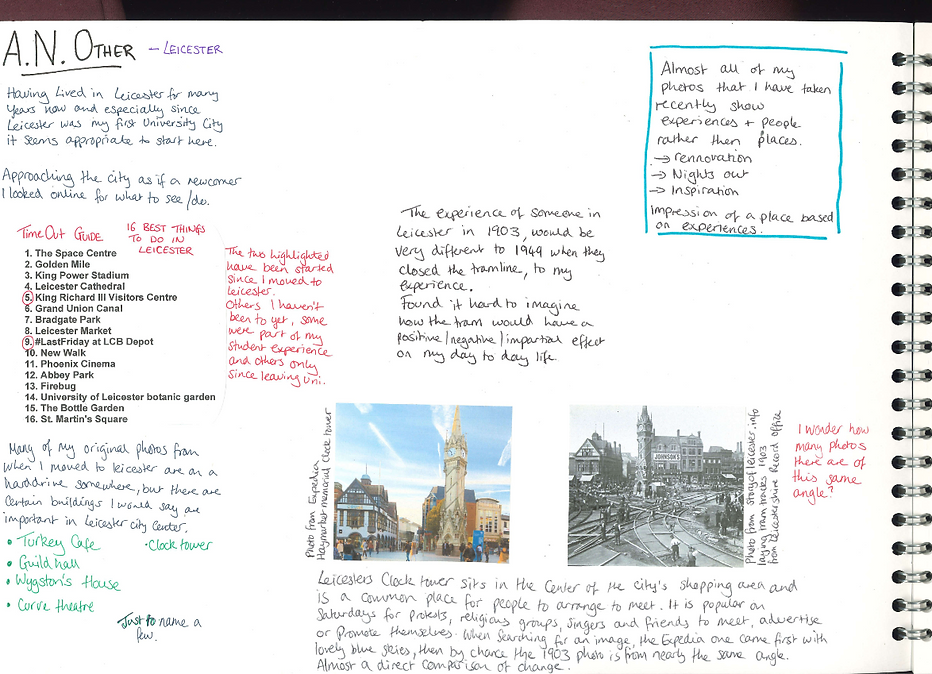 A.N. OTHER - LEICESTER
Having lived in Leicester for many
years now and especially since
Leicester was my first University City
it seems appropriate to start here.
Approaching the city as if a newcomer
I looked online for what to see/do.
TimeOut GUIDE 16 BEST THINGS
TO DO IN
LEICESTER
1. The Space Centre
2. Golden Mile
3. King Power Stadium
4. Leicester Cathedral
5. King Richard III Visitors Centre
6. Grand Union Canal
7. Bradgate Park
8. Leicester Market
9. #LastFriday at LCB Depot
10. New Walk
11. Phoenix Cinema
12. Abbey Park
13. Firebug
14. University of Leicester botanic garden
15. The Bottle Garden
16. St. Martin's Square
The two highlighted
have been started
since I moved to
leicester.
Others I haven't
been to yet, some
were part of my
student experience
and others only
since leaving uni.
Many of my original photos from
when I moved to leicester are on a
harddrive somewhere, but there are
certain buildings I would say are
important in Leicester city Center.
• Turkey Cafe
• Clock tower
• Guildhall
• Wygston's House
• Curve theatre
Just to name a
few.
The experience of someone in
Leicester in 1903, would be
very different to 1949 when they
closed the tramline, to my
experience.
Found it hard to imagine
how the tram would have a
positive/negative/impartial effect
on my day to day life.
Almost all of my
photos that I have taken
recently show
experiences + people
rather then places.
→ rennovation
→ Nights out
→ Inspiration
Impression of a place based
on experiences.
Photo from Expedia
Haymarket memorial Clock tower
JOHNSON'S
Photo from storyofleicester.info
laying tram routes 1903
from Leicestershire Record Office
I wonder how
many photos
there are of
this same
angle?
Leicesters Clock tower sits in the Center of the city's shopping area and
is a common place for people to arrange to meet. It is popular on
Saturdays for protests, religious groups, singers and friends to meet, advertise
or promote themselves. When searching for an image, the Expedia one came first with
lovely blue skies, then by chance the 1903 photo is from nearly the same angle.
Almost a direct comparison of change.